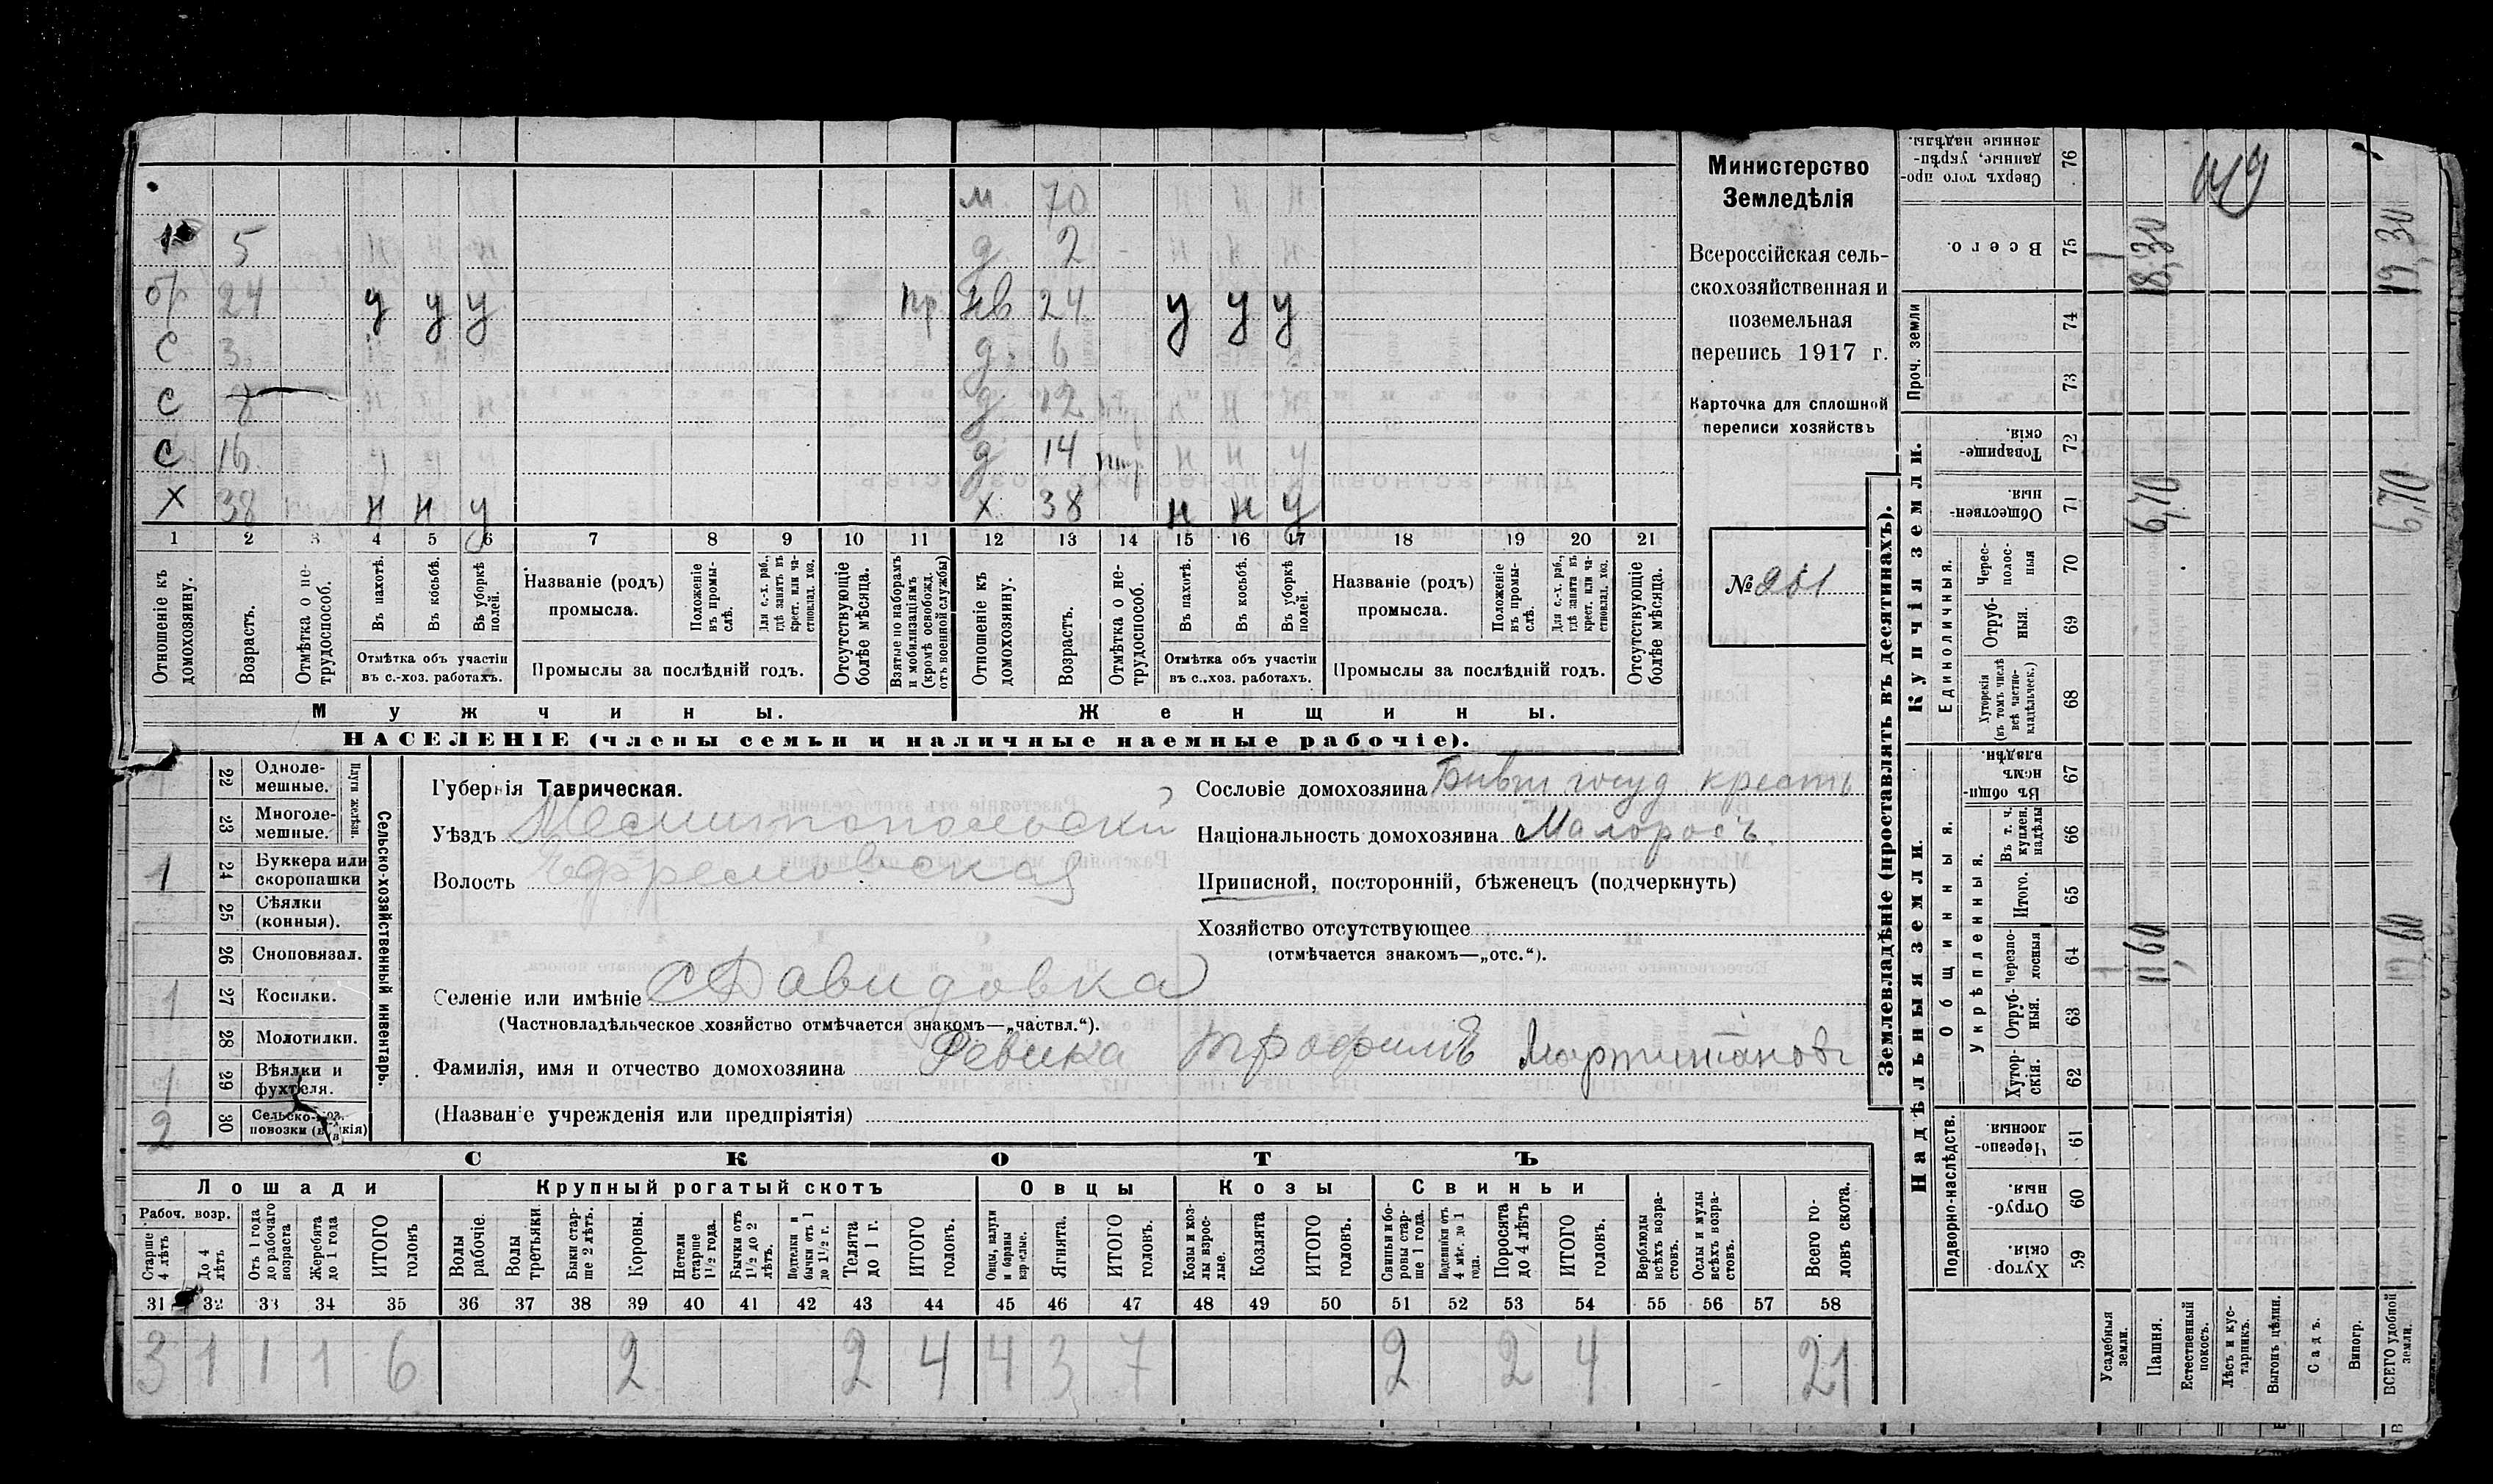 Министерство
Земледѣлія
Всероссійская сель-
скохозяйственная и
поземельная
перепись 1917 г.
Карточка для сплошной
переписи хозяйствъ
№ 201
м. 70
5 н н н д. 2 - н н н
бр 24 у у у пр. нв 24 у у у
с 3. д. 6
с 8 н н н д. 12 н н н
с 16 у у у д 14 н н у
х 38 н н у х. 38 н н у
1 2 3 4 5 6 7 8 9 10 11 12 13 14 15 16 17 18 19 20 21
Отношеніе къ домохозяину.
Возрастъ.
Отмѣтка о не-трудоспособ.
Въ пахотѣ.
Въ косьбѣ.
Въ уборкѣ полей.
Отмѣтка объ участіи
въ с.-хоз. работахъ.
Названіе (родъ)
промысла.
Положеніе въ промы-слѣ.
Для с.-х. раб., гдѣ занятъ въ крест. или ча-стновлад. хоз.
Промыслы за послѣдній годъ.
Отсутствующіе болѣе мѣсяца.
Взятые по наборамъ и мобилизаціямъ (кромѣ освобожд. отъ военной службы)
Отношеніе къ домохозяину.
Возрастъ.
Отмѣтка о не-трудоспособ.
Въ пахотѣ.
Въ косьбѣ.
Въ уборкѣ полей.
Отмѣтка объ участіи
въ с.-хоз. работахъ.
Названіе (родъ)
промысла.
Положеніе въ промы-слѣ.
Для с.-х. раб., гдѣ занята въ крест. или ча-стновлад. хоз.
Промыслы за послѣдній годъ.
Отсутствующіе болѣе мѣсяца.
Мужчины. Женщины.
НАСЕЛЕНІЕ (члены семьи и наличные наемные рабочіе).
Сельско-хозяйственный инвентарь.
Плуги желѣзн.
22 Одноле-мешные.
23 Многоле-мешные.
1 24 Буккера или скоропашки
25 Сѣялки (конныя).
26 Сноповязал.
1 27 Косилки.
28 Молотилки.
1 29 Вѣялки и фухтеля.
2 30 Сельско-хоз. повозки
Губернія Таврическая.
Уѣздъ Мелитопольский
Волость Ефремовская
Селеніе или имѣніе с Давидовка
(Частновладѣльческое хозяйство отмѣчается знакомъ—„частвл.“).
Фамилія, имя и отчество домохозяина Ревика Трофимъ
(Названіе учрежденія или предпріятія)
Сословіе домохозяина Бывш госуд крестъ
Національность домохозяина Малоросъ.
Приписной, посторонній, бѣженецъ (подчеркнуть)
Хозяйство отсутствующее
(отмѣчается знакомъ—„отс.“).
СКОТЪ
Лошади Крупный рогатый скотъ Овцы Козы Свиньи
Рабоч. возр.
Старше 4 лѣтъ
До 4 лѣтъ
Отъ 1 года до рабочаго возраста
Жеребята до 1 года
ИТОГО головъ
Волы рабочіе.
Волы третьяки.
Быки стар-ше 2 лѣтъ.
Коровы.
Нетели старше 1½ года.
Бычки отъ 1½ до 2 лѣтъ.
Подтелки и бычки отъ 1 до 1½ г.
Телята до 1 г.
ИТОГО головъ.
Овцы, валухи и бараны взрослые.
Ягнята.
ИТОГО головъ.
Козы и коз-лы взрос-лые.
Козлята
ИТОГО головъ.
Свиньи и бо-ровы стар-ше 1 года.
Подсвинки отъ 4 мѣс. до 1 года.
Поросята до 4 лѣтъ
ИТОГО головъ.
Верблюды всѣхъ возра-стовъ.
Ослы и мулы всѣхъ возра-стовъ.
Всего го-ловъ скота.
31 32 33 34 35 36 37 38 39 40 41 42 43 44 45 46 47 48 49 50 51 52 53 54 55 56 57 58
3 1 1 1 6 2 2 4 4 3 7 2 2 4 21
Землевладѣніе (проставлять въ десятинахъ).
Надѣльныя земли. Купчія земли. Проч. земли
Подворно-наслѣдств.
Общинныя.
Укрѣпленныя.
Единоличныя.
59 Хутор-скія.
60 Отруб-ныя.
61 Черезпо-лосныя.
62 Хутор-скія.
63 Отруб-ныя.
64 Черезпо-лосныя
65 Итого.
66 Въ т. ч. куплен. надѣлы
67 Въ общи-немъ владѣн.
68 Хуторскія (въ томъ числѣ всѣ частно-владѣльческ.)
69 Отруб-ныя.
70 Черес-полос-ныя
71 Обществен-ныя.
72 Товарище-скія.
73
74
75 Всего.
76 Сверхъ того про-данные, укрѣп-ленные надѣлы.
Усадебныя земли. 1 1
Пашня. 11,60 6,70 18,30
Естественный покосъ.
Лѣсъ и кус-тарникъ.
Выгонъ цѣлин.
Садъ.
Виногр.
ВСЕГО удобной земли. 6,70 19,30